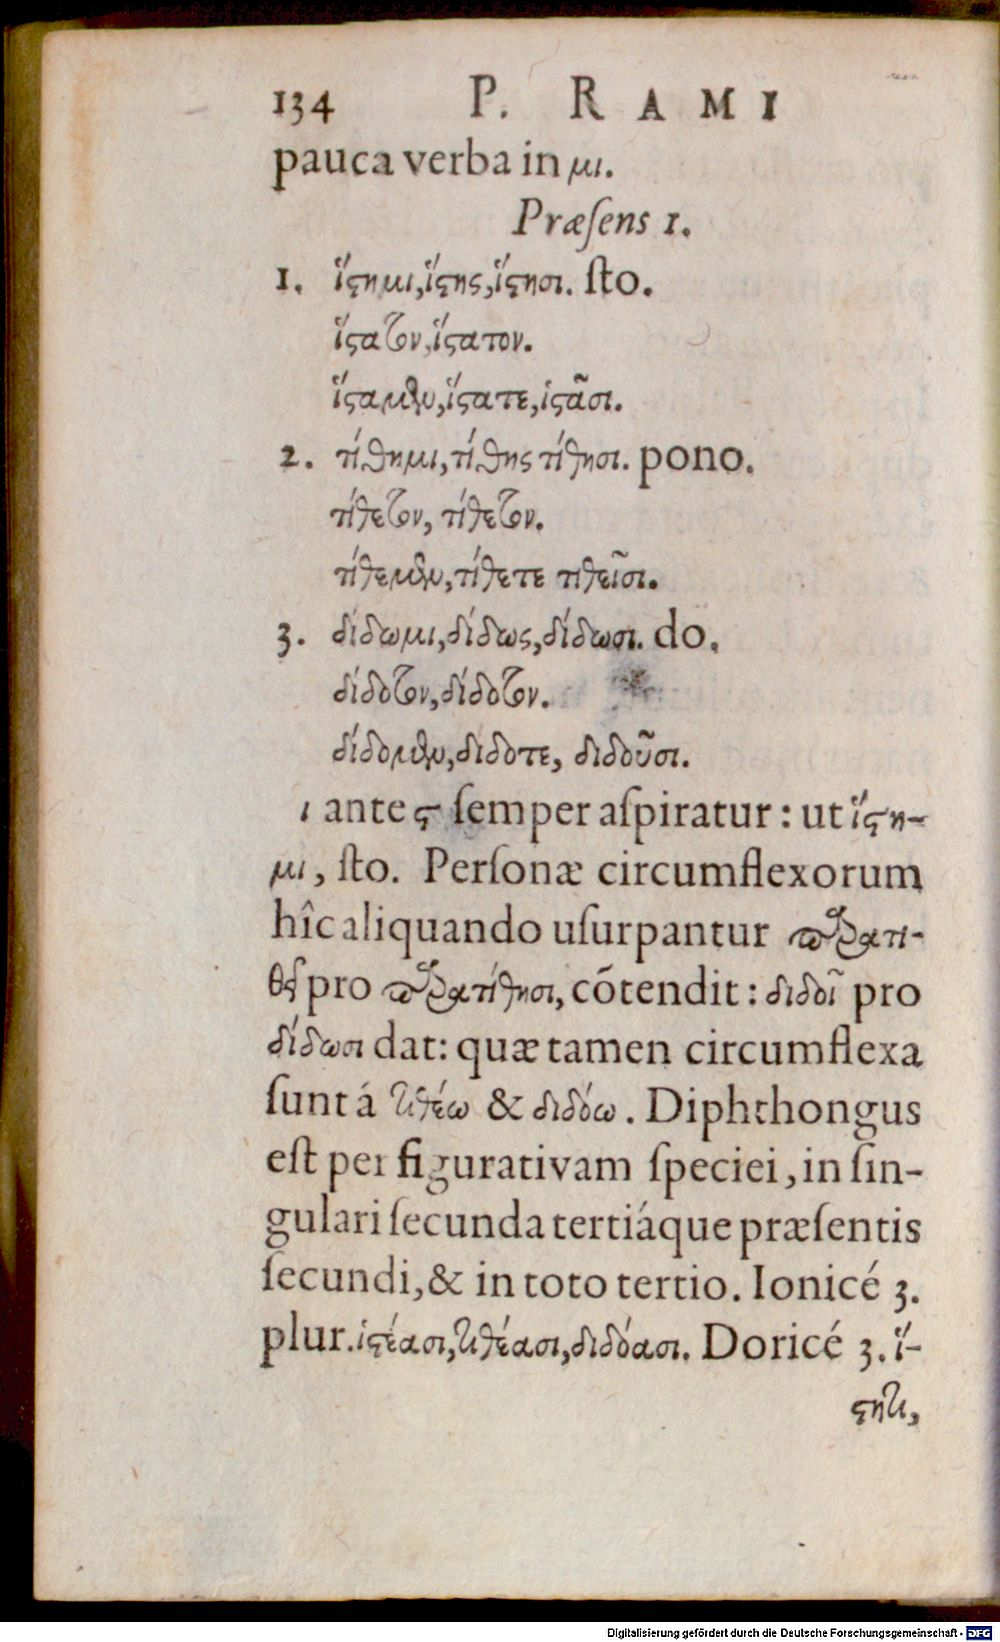 134 P. RAMI
pauca verba in μι.
Præſens 1.
1. ἵϛημι, ἵϛης, ἵϛησι. ſto.
ἵϛατον, ἵϛατον.
ἵϛαμϟυ, ἵϛατε, ἱϛᾶσι.
2. τίθημι, τίθης τίθησι. pono.
τίθετον, τίθετον.
τίθεμϟυ, τίθετε τιθεῖσι.
3. δίδωμι, δίδως, δίδωσι. do.
δίδοτον, δίδοτον.
δίδομϟυ, δίδοτε, διδοῦσι.
ι ante ϛ ſemper aſpiratur: ut ἵϛη-
μι, ſto. Perſonæ circumflexorum
hîc aliquando uſurpantur παρατι-
θεῖ pro παρατίθησι, cōtendit: διδοῖ pro
δίδωσι dat: quæ tamen circumflexa
ſunt á τιθέω & διδόω. Diphthongus
eſt per figurativam ſpeciei, in ſin-
gulari ſecunda tertiáque præſentis
ſecundi, & in toto tertio. Ionicé 3.
plur. ἱϛέασι, τιθέασι, διδόασι. Doricé 3. ἵ-
ϛητι,
Digitalisierung gefördert durch die Deutsche Forschungsgemeinschaft - DFG